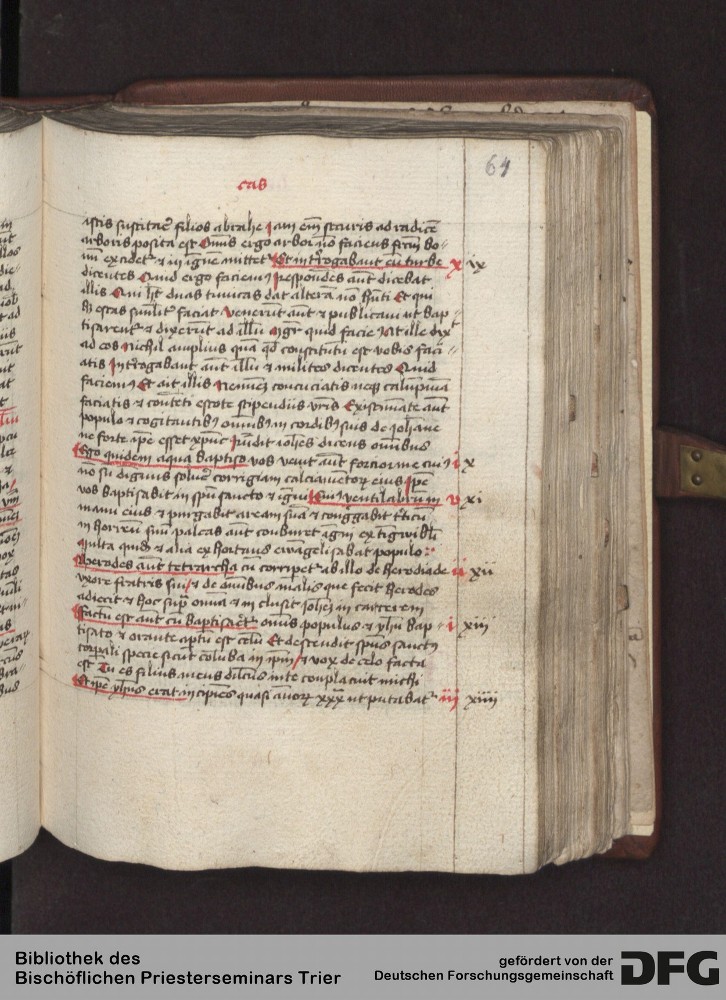 cas
64
istis suscitare filios abrahe Iam em̄ securis ad radicē
arboris posita est Omnis ergo arbor nō faciens fructū bo
nū excidetr̄ & in ignē mittetr̄ Et interrogabant eū turbe x ix
dicentes Quid ergo faciemꝰ Respondēs aut̄ dicebat
illis Qui hȝ duas tunicas dat alterā nō hn̄ti Et qui
hȝ escas simlit̄ faciat Venerūt aut̄ & publicani ut bap
tisarentr̄ & dixerūt ad illū Mgr̄ quid faciemꝰ At ille dixᵗ
ad eos Nichil amplius quā qđ constitutū est vobis faci
atis Interrogabant aut̄ illū & milites dicentes Quid
faciemꝰ Et ait illis Neminē concuciatis neqȝ calumpniā
faciatis & contēti estote stipendiis vr̄is Existimāte aut̄
populo & cogitantibȝ omnibȝ in cordibȝ suis de Johāne
ne forte ipē esset xpūc Rn̄dit Joh̄es dicens omnibus
Ego quidem aqua baptiso vos veniet aut̄ forcior me cuiꝰ i x
nō sū dignus soluē corrigiam calciamētoꝝ eius Ipē
vos baptisabit in spū sancto & igni Cuiꝰ ventilabrum in v xi
manu eius & purgabit aream suā & congregabit t̄ticū
in horreū suū paleas aut̄ conburet igni extīgwibli
Multa quidē & alia exhortans ewangelisabat populo
Herodes aut̄ tetrarcha cū corripetr̄ ab illo de herodiade ii xii
vxore fratris sui & de omnibus malis que fecit herodes
adiecit & hoc supra omnia & inclusit Joh̄ēȝ in carcerem
Factū est aut̄ cū baptisaretr̄ omnis populus & yhū bap i xiii
tisato & orante aptū est celū Et descendit spūs sanctꝰ
corpali specie sicut columba in ipm̄ & vox de celo facta
est Tu es filius meus dilcūs in te complacuit michi
Et ipē yhūs erat incipiēs quasi annoꝝ xxx ut putabatr̄ iii xiiii
Bibliothek des
Bischöflichen Priesterseminars Trier
gefördert von der
Deutschen Forschungsgemeinschaft
DFG